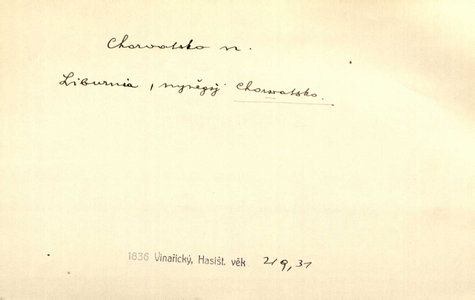 Chorvatsko n.
Liburnia, nyněgšj Chorwatsko.
1836 Vinařický, Hasišt. věk 219, 31